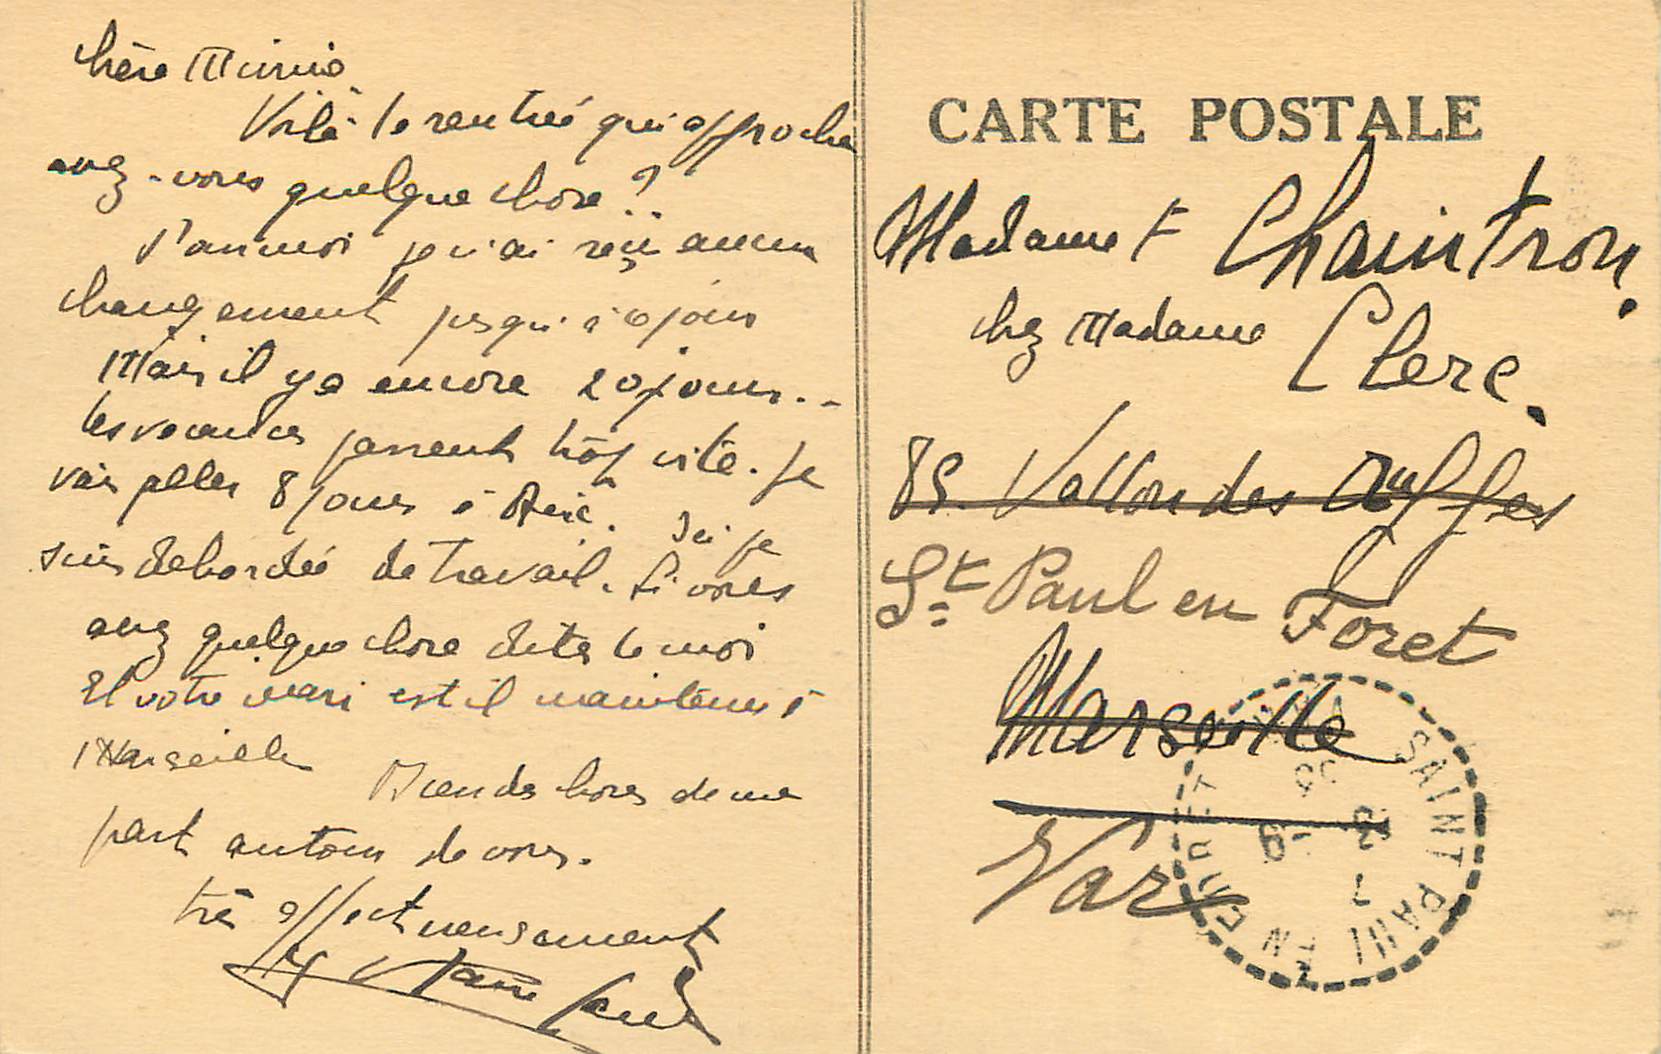 Chère Mimie
Voilà la rentrée qui approche
avez-vous quelque chose ?
Pour moi je n'ai reçu aucun
changement jusqu'à ce jour
Mais il y a encore 20 jours..
les vacances passent trop vite. Je
vais aller 8 jours à . Ici je
suis débordée de travail. Si vous
avez quelque chose dites le moi
Et votre mari est il maintenu à
Marseille Bien des choses de ma
part autour de vous.
très affectueusement
CARTE POSTALE
Madame F Chaintron.
chez Madame Clerc.
89. Vallon des Auffes
St Paul en Foret
Marseille
Var
SAINT PAUL EN